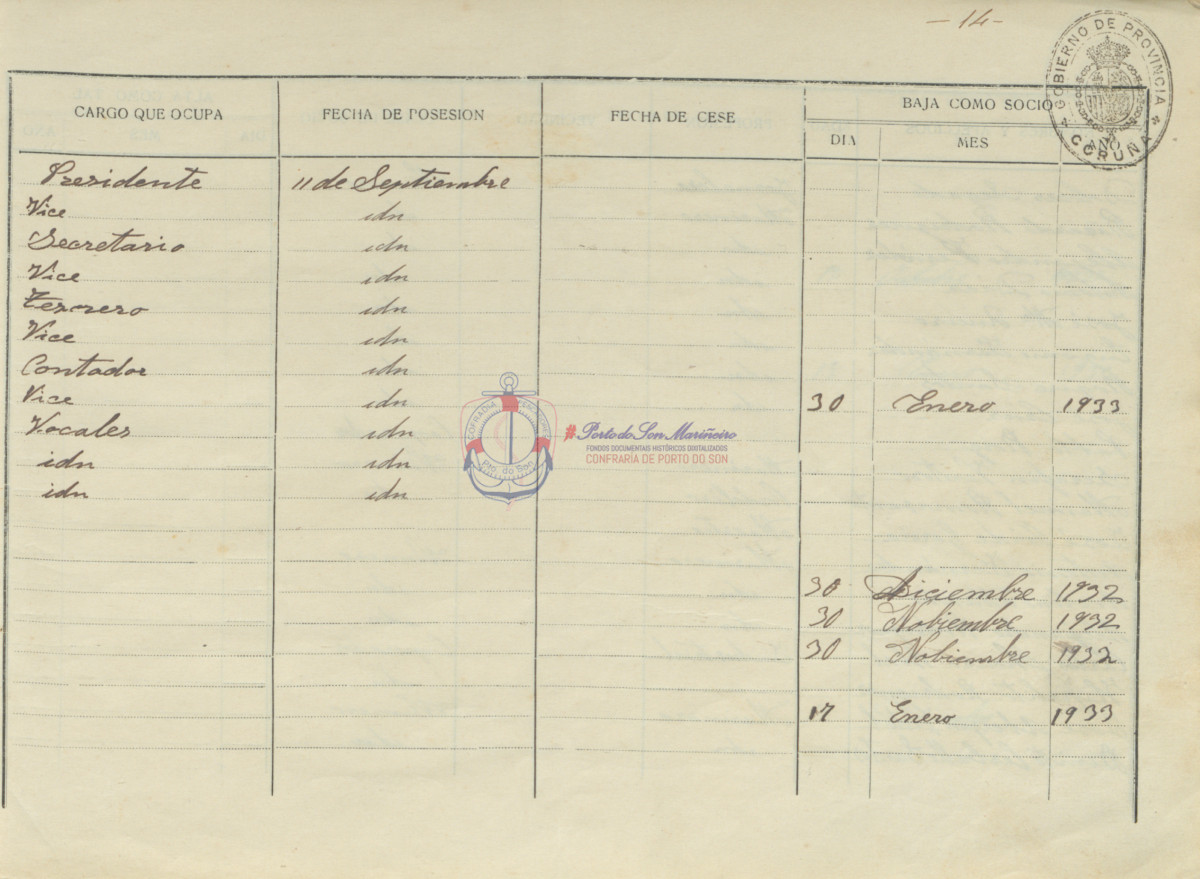 - 14 -
GOBIERNO DE PROVINCIA
CORUÑA
CARGO QUE OCUPA FECHA DE POSESION FECHA DE CESE BAJA COMO SOCIO
DIA MES AÑO
Presidente 11 de Septiembre
Vice idn
Secretario idn
Vice idn
Tesorero idn
Vice idn
Contador idn
Vice idn 30 Enero 1933
Vocales idn
idn idn
idn idn
30 Diciembre 1932
30 Nobiembre 1932
30 Nobiembre 1932
17 Enero 1933
COFRADIA PESCADORES
Pto. do Son
#Porto do Son Mariñeiro
FONDOS DOCUMENTAIS HISTÓRICOS DIXITALIZADOS
CONFRARÍA DE PORTO DO SON